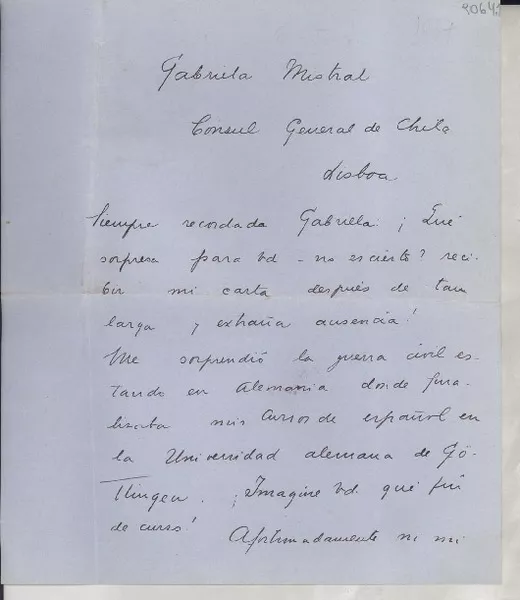 Gabriela Mistral
Consul General de Chile
Lisboa
Siempre recordada Gabriela: ¡Qué
sorpresa para Vd - no es cierto? reci-
bir mi carta después de tan
larga y extraña ausencia!
Me sorprendió la guerra civil es-
tando en Alemania donde fina-
lizaba mis cursos de español en
la Universidad alemana de Gö-
ttingen. ¡Imagine Vd. qué fin
de curso!
Afortunadamente ni mi